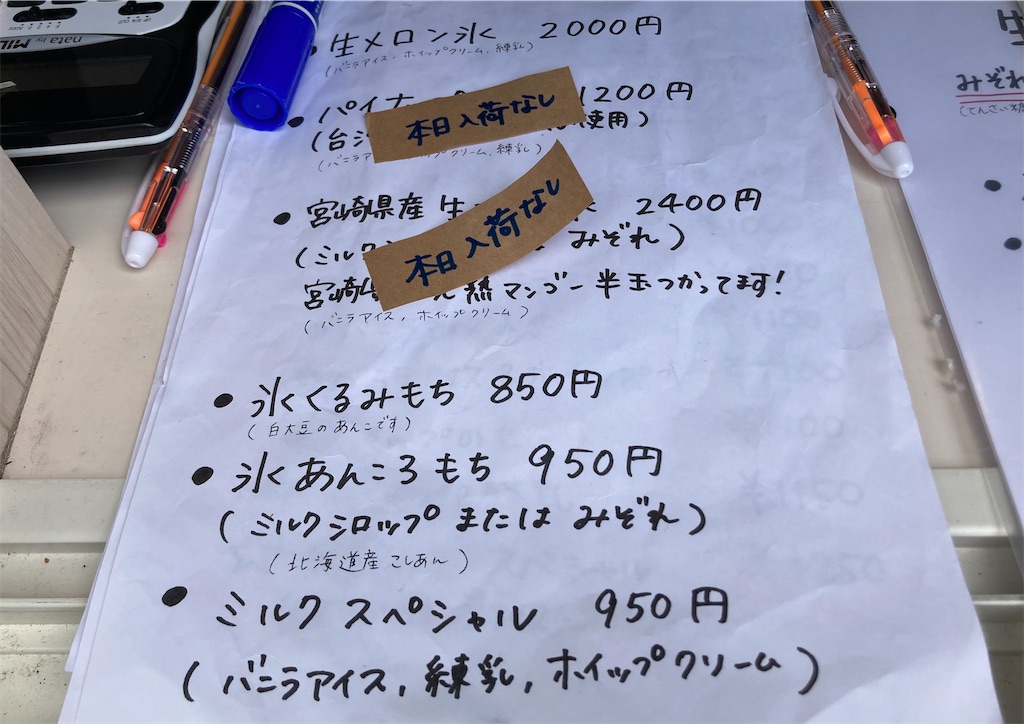 nata by MIL
・生メロン氷 2000円
(バニラアイス, ホイップクリーム, 練乳)
・パイナ 1200円
本日入荷なし
(台 使用)
(バニラア ップクリーム, 練乳)
・宮崎県産 生 2400円
本日入荷なし
(ミルク みぞれ)
宮崎 完熟マンゴー半玉つかってます!
(バニラアイス, ホイップクリーム)
・氷くるみもち 850円
(白大豆のあんこです)
・氷あんころもち 950円
(ミルクシロップ または みぞれ)
(北海道産こしあん)
・ミルクスペシャル 950円
(バニラアイス, 練乳, ホイップクリーム)
生
みぞれ
(てんさい糖